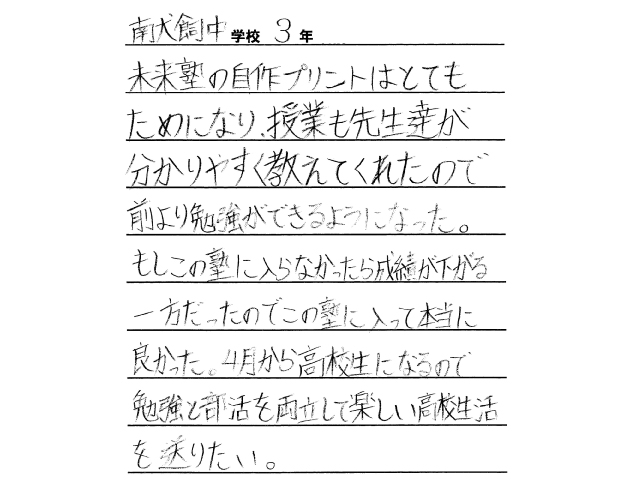 南犬飼中学校 3年
未来塾の自作プリントはとても
ためになり、授業も先生達が
分かりやすく教えてくれたので
前より勉強ができるようになった。
もしこの塾に入らなかったら成績が下がる
一方だったのでこの塾に入って本当に
良かった。4月から高校生になるので
勉強と部活を両立して楽しい高校生活
を送りたい。